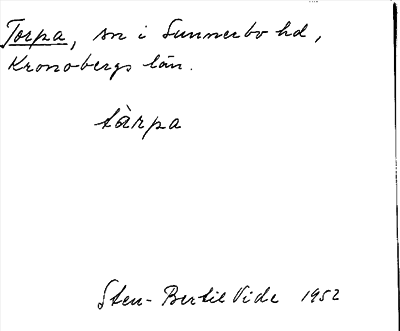 Torpa, sn i Sunnerbo hd,
Kronobergs län.
tàrpa
Sten-Bertil Vide 1952